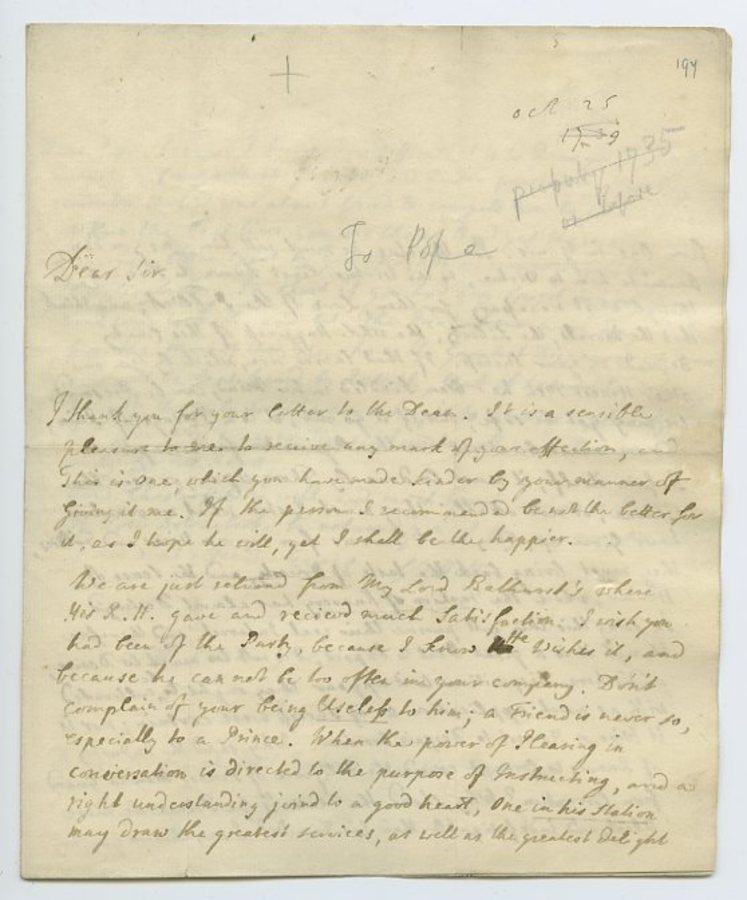 194
Oct 25
1739
probably 1735
or before
To Pope
Dear Sir
I thank you for your letter to the Dean. It is a sensible
pleasure to me to receive any mark of your affection, and
This is one, which you have made kinder by your manner of
Giving it me. If the person I recommended be not the better for
it, as I hope he will, yet I shall be the happier.
We are just returnd from My Lord Bathurst's where
His R. H. gave and recievd much Satisfaction. I wish you
had been of the Party, because I know He Wishes it, and
because he can not be too often in your company. Don't
complain of your being Useless to him; a Friend is never so,
especially to a Prince. When the power of Pleasing in
conversation is directed to the purpose of Instructing, and a
right understanding joind to a good heart, One in his Station
may draw the greatest services, as well as the greatest Delight